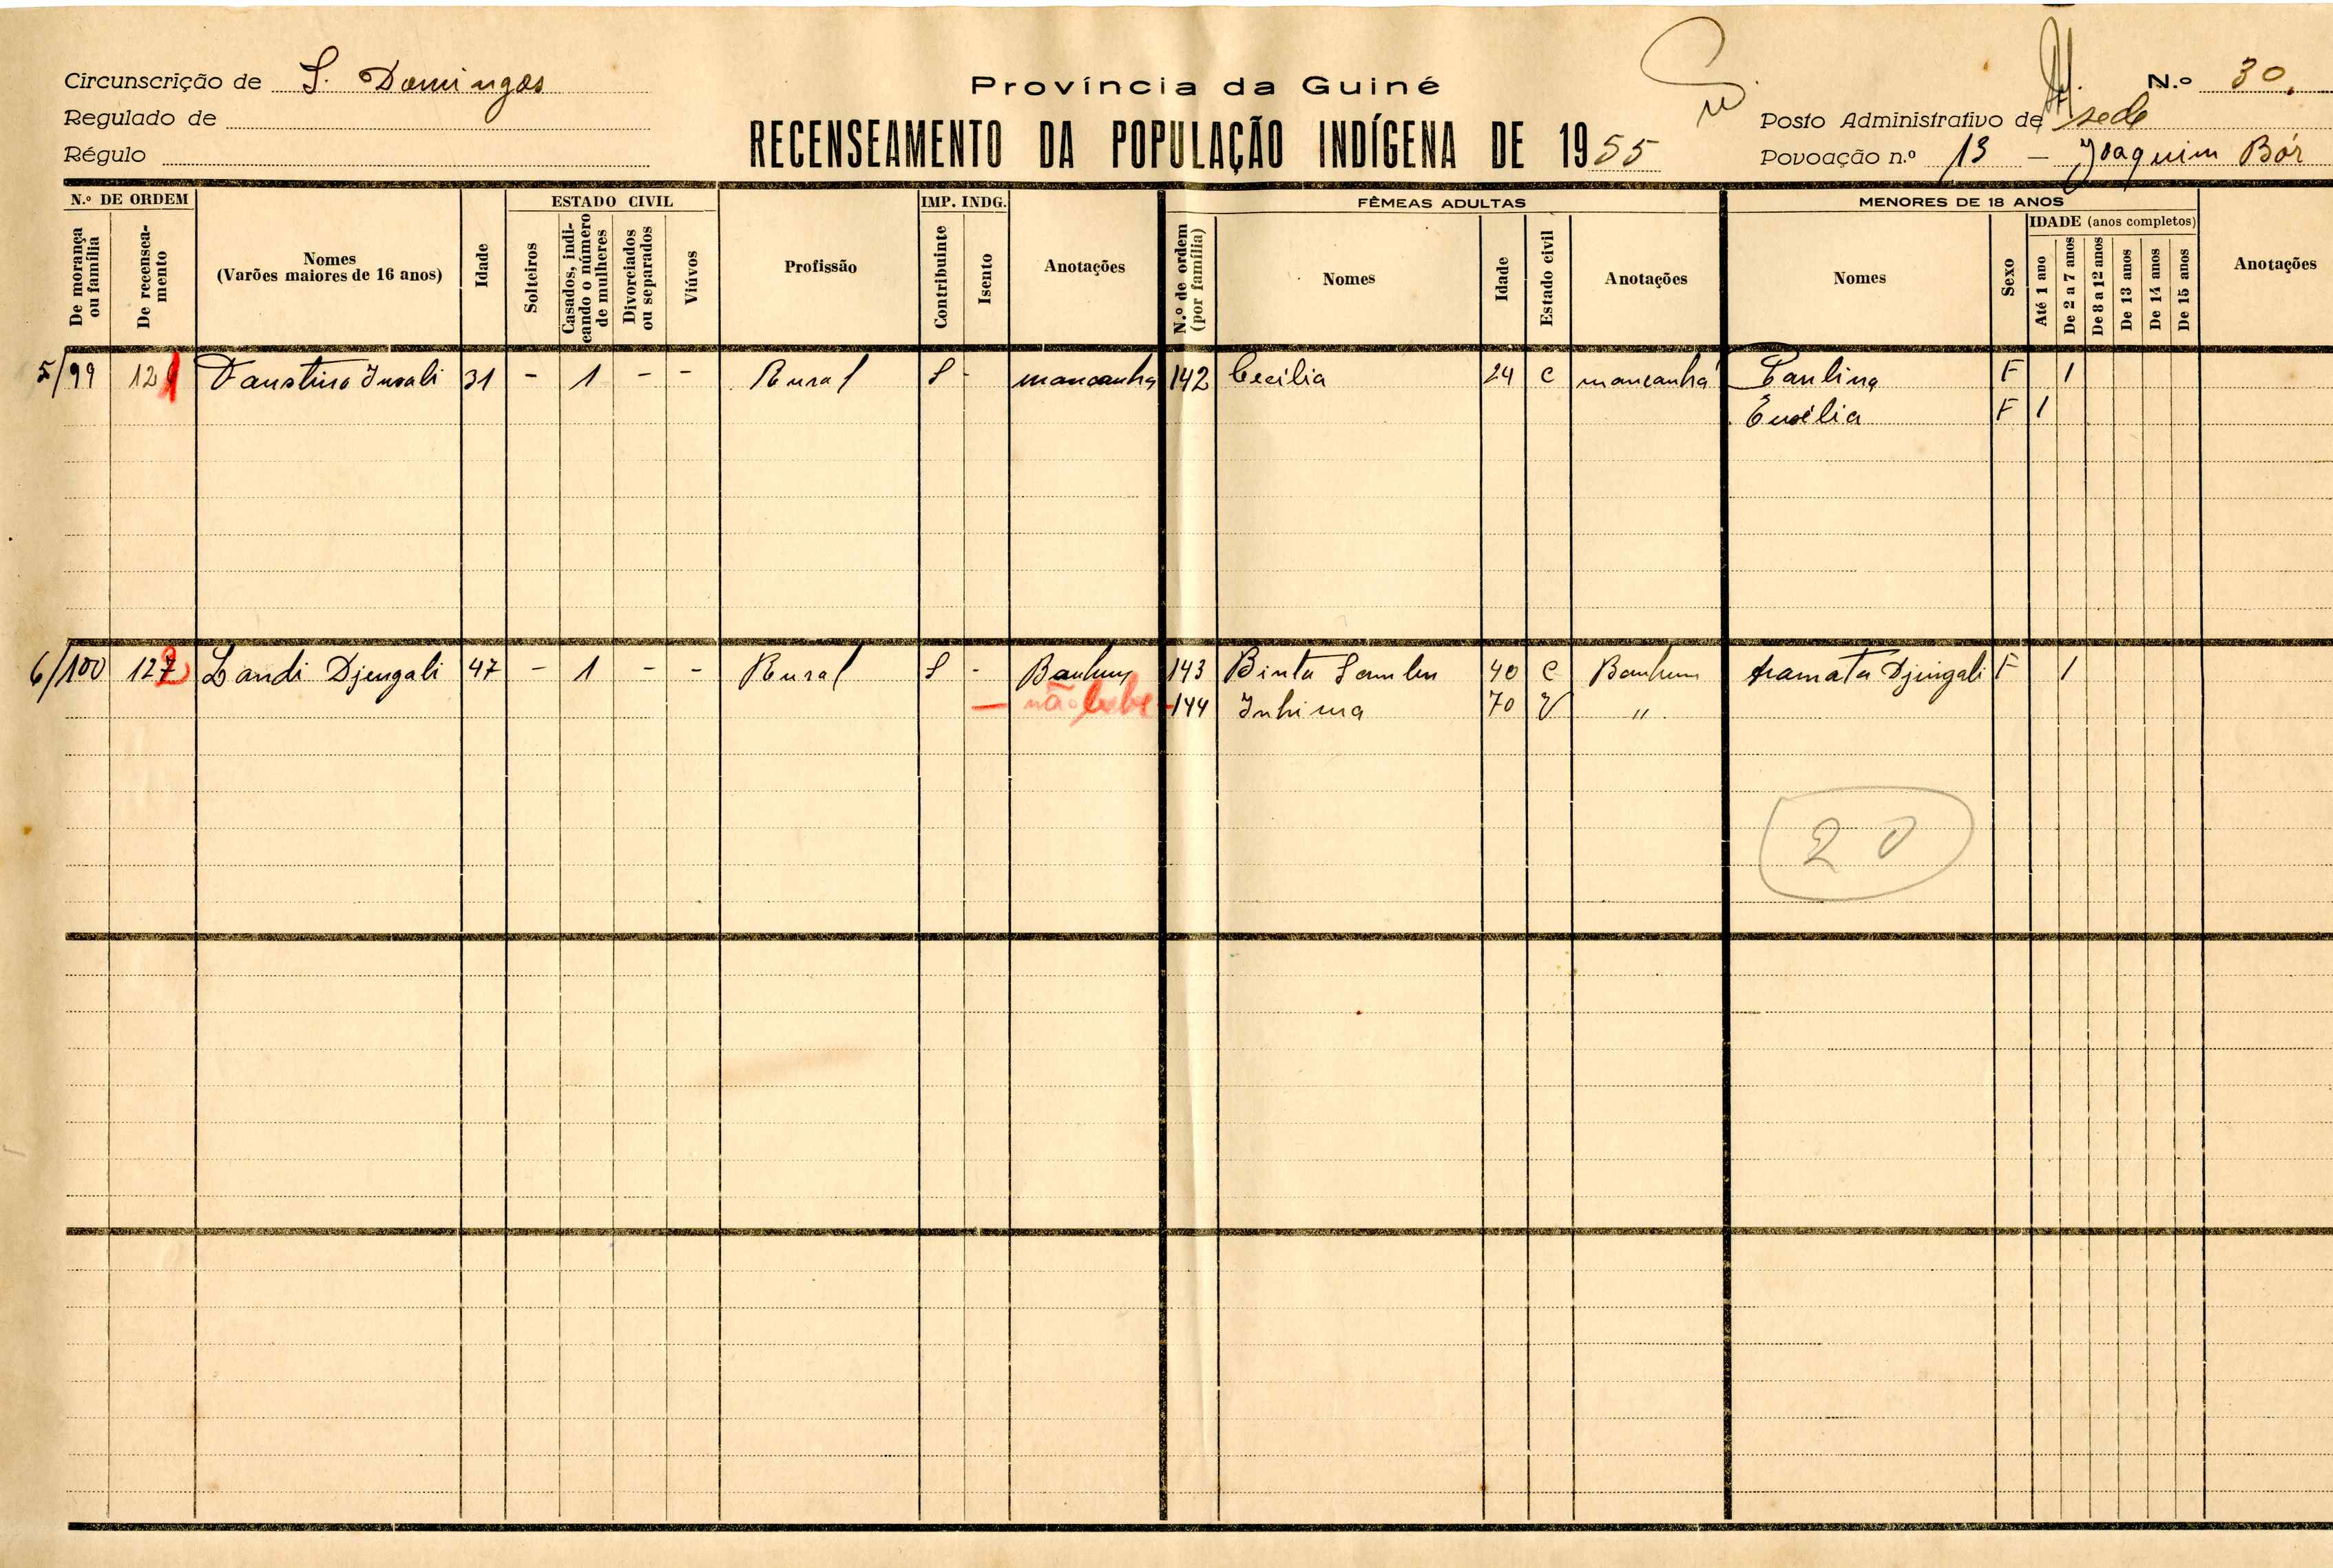 Circunscrição de S. Domingos
Regulado de
Régulo
Província da Guiné
RECENSEAMENTO DA POPULAÇÃO INDÍGENA DE 1955
N.º 30.
Posto Administrativo de sede
Povoação n.º 13 — Joaquim Bór
N.º DE ORDEM
De morança ou família
De recenseamento
Nomes
(Varões maiores de 16 anos)
Idade
ESTADO CIVIL
Solteiros
Casados, indicando o número de mulheres
Divorciados ou separados
Viúvos
Profissão
IMP. INDG.
Contribuinte
Isento
Anotações
FÊMEAS ADULTAS
N.º de ordem (por família)
Nomes
Idade
Estado civil
Anotações
MENORES DE 18 ANOS
Nomes
Sexo
IDADE (anos completos)
Até 1 ano
De 2 a 7 anos
De 8 a 12 anos
De 13 anos
De 14 anos
De 15 anos
Anotações
5/99 121 Faustino 31 - 1 - - Rural S - mancanha 142 Cecilia 24 C mancanha Paulina F 1
F 1
6/100 122 Landi Djengali 47 - 1 - - Rural S - Banhum 143 Binta 40 C Banhum Djingali F 1
— não 144 Inhima 70 V "
20